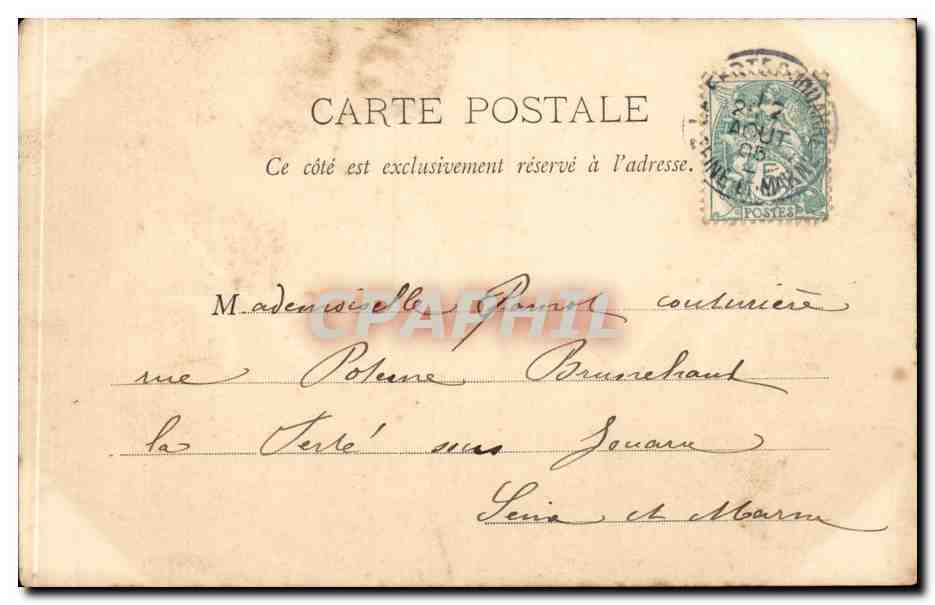 CARTE POSTALE
Ce côté est exclusivement réservé à l'adresse.
2
AOUT
05
SEINE ET MARNE
POSTES
CPAPHIL
Mademoiselle couturière
rue Poterne Brunehaut
la Ferté sous Jouarre
Seine et Marne